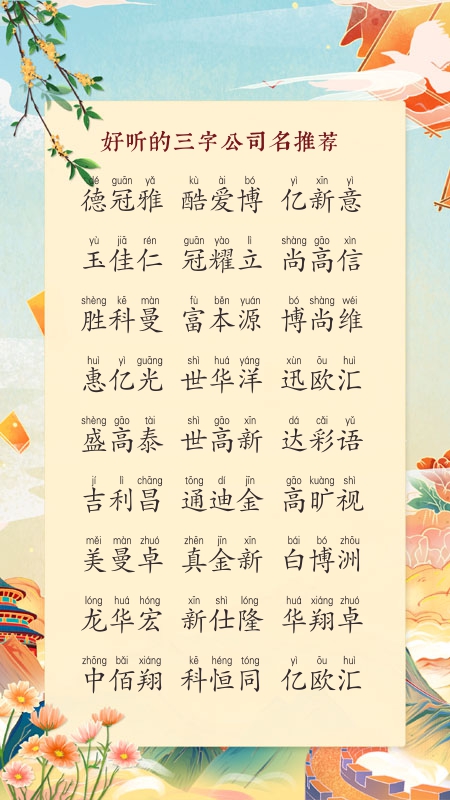 好听的三字公司名推荐
dé guān yǎ kù ài bó yì xīn yì
德冠雅 酷爱博 亿新意
yù jiā rén guān yào lì shàng gāo xìn
玉佳仁 冠耀立 尚高信
shèng kē màn fù běn yuán bó shàng wéi
胜科曼 富本源 博尚维
huì yì guāng shì huá yáng xùn ōu huì
惠亿光 世华洋 迅欧汇
shèng gāo tài shì gāo xīn dá cǎi yǔ
盛高泰 世高新 达彩语
jí lì chāng tōng dí jīn gāo kuàng shì
吉利昌 通迪金 高旷视
měi màn zhuó zhēn jīn xīn bái bó zhōu
美曼卓 真金新 白博洲
lóng huá hóng xīn shì lóng huá xiáng zhuó
龙华宏 新仕隆 华翔卓
zhōng bǎi xiáng kē héng tóng yì ōu huì
中佰翔 科恒同 亿欧汇